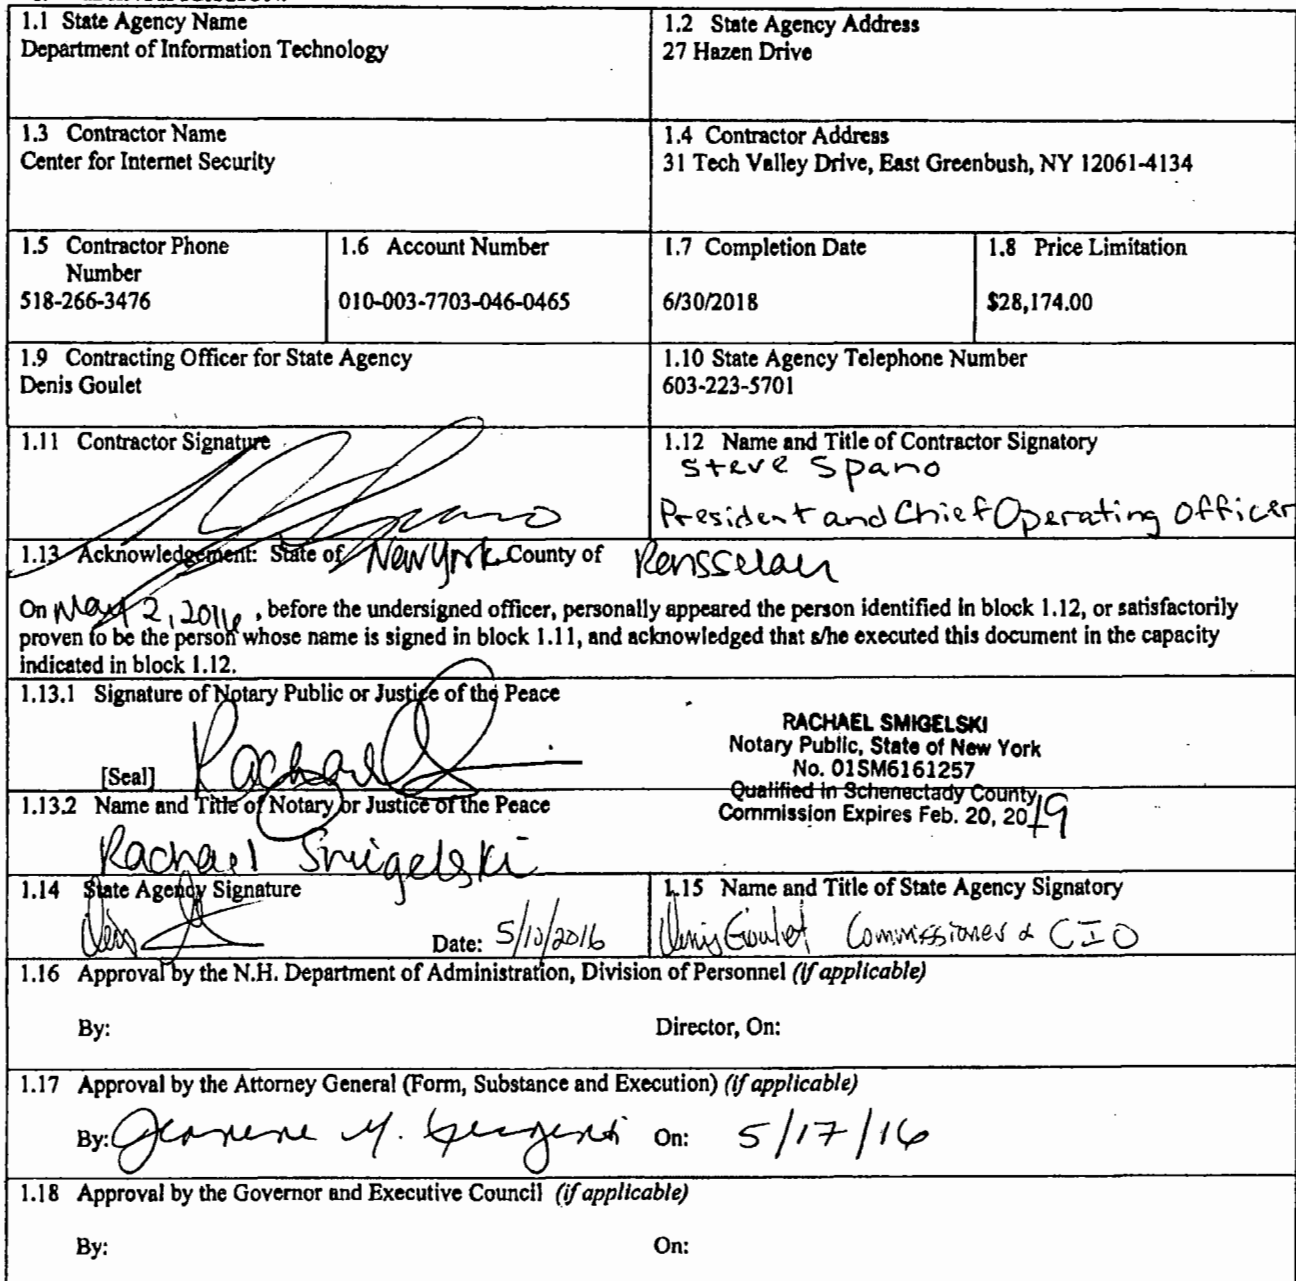 1.1 State Agency Name
Department of Information Technology
1.2 State Agency Address
27 Hazen Drive
1.3 Contractor Name
Center for Internet Security
1.4 Contractor Address
31 Tech Valley Drive, East Greenbush, NY 12061-4134
1.5 Contractor Phone
Number
518-266-3476
1.6 Account Number
010-003-7703-046-0465
1.7 Completion Date
6/30/2018
1.8 Price Limitation
$28,174.00
1.9 Contracting Officer for State Agency
Denis Goulet
1.10 State Agency Telephone Number
603-223-5701
1.11 Contractor Signature
1.12 Name and Title of Contractor Signatory
Steve Spano
President and Chief Operating Officer
1.13 Acknowledgement: State of New York County of Rensselaer
On May 2, 2016, before the undersigned officer, personally appeared the person identified in block 1.12, or satisfactorily
proven to be the person whose name is signed in block 1.11, and acknowledged that s/he executed this document in the capacity
indicated in block 1.12.
1.13.1 Signature of Notary Public or Justice of the Peace
[Seal]
RACHAEL SMIGELSKI
Notary Public, State of New York
No. 01SM6161257
Qualified in Schenectady County
Commission Expires Feb. 20, 2019
1.13.2 Name and Title of Notary or Justice of the Peace
Rachael Smigelski
1.14 State Agency Signature
Date: 5/10/2016
1.15 Name and Title of State Agency Signatory
Denis Goulet Commissioner & CIO
1.16 Approval by the N.H. Department of Administration, Division of Personnel (if applicable)
By: Director, On:
1.17 Approval by the Attorney General (Form, Substance and Execution) (if applicable)
By: On: 5/17/16
1.18 Approval by the Governor and Executive Council (if applicable)
By: On: